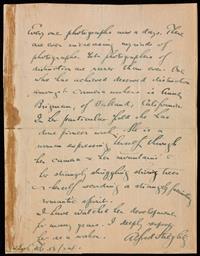 Every one photographs now a days. There
are ever increasing myriads of
photographs. Yet photographers of
distinction are rarer than ever. One
who has achieved deserved distinction
amongst camera workers is Annie
Brigman, of Oakland, California.
In her particular field she has
done pioneer work. She is a
woman expressing herself through
her camera & her mountains &
her strangely struggling strong trees
& herself revealing a strangely
romantic spirit.
I have watched her development
for many years. I deeply respect
her as a worker.
Alfred Stieglitz